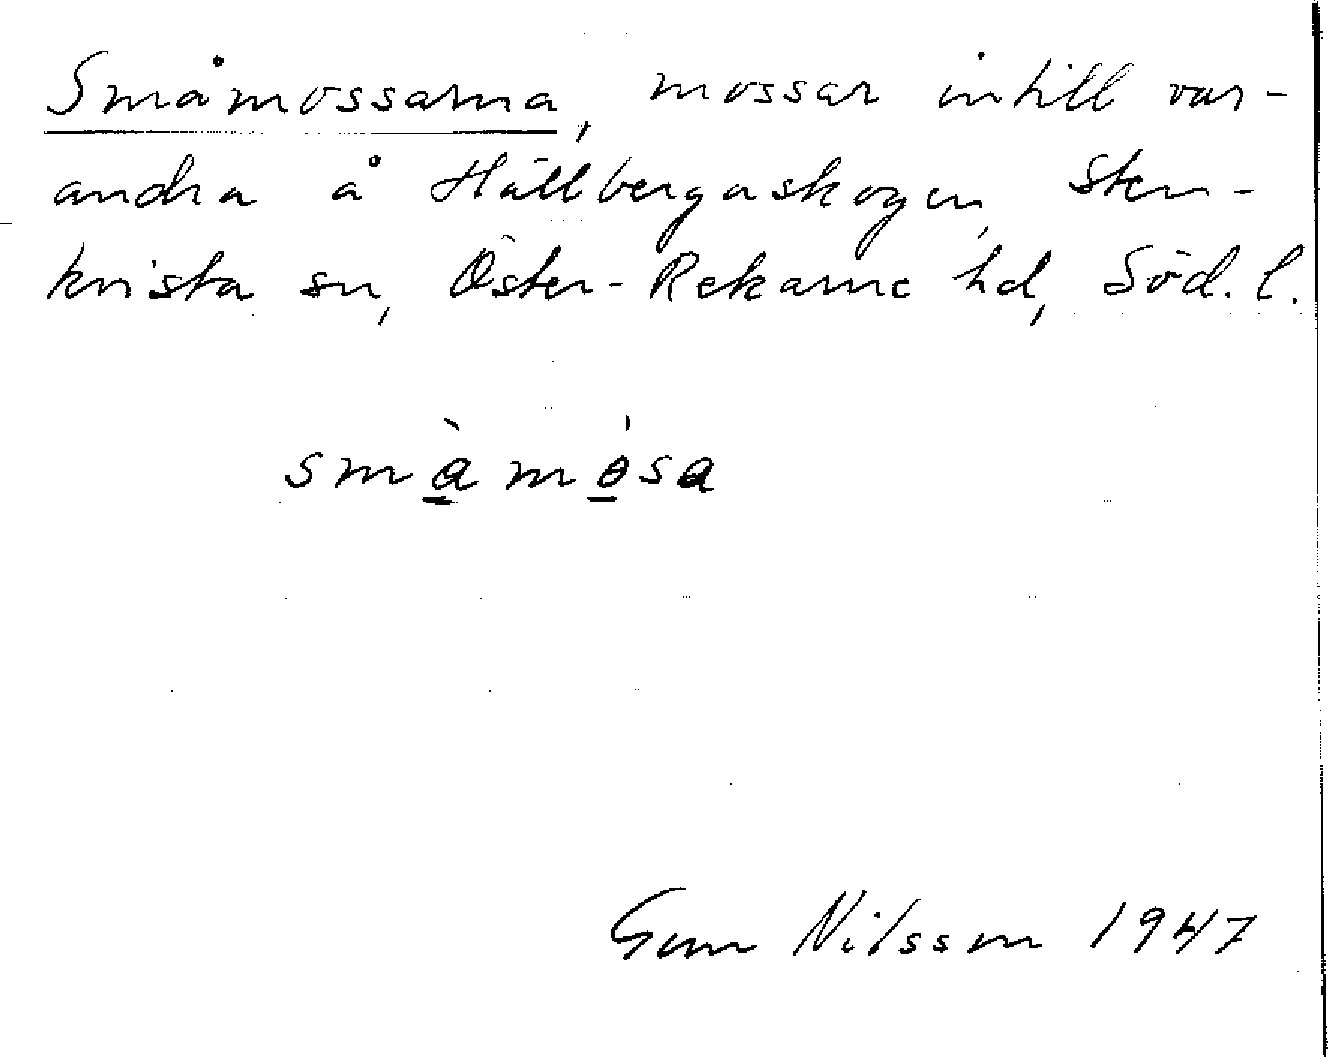 Småmossarna, mossar intill var-
andra å Hällbergaskogen, Sten-
kvista sn, Öster-Rekarne hd, Söd. l.
småmosa
Gun Nilsson 1947